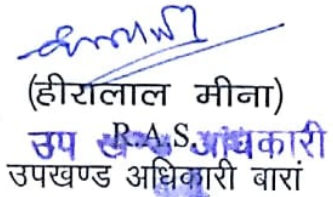 (हीरालाल मीना)
R.A.S.
उप खण्ड अधिकारी
उपखण्ड अधिकारी बारां